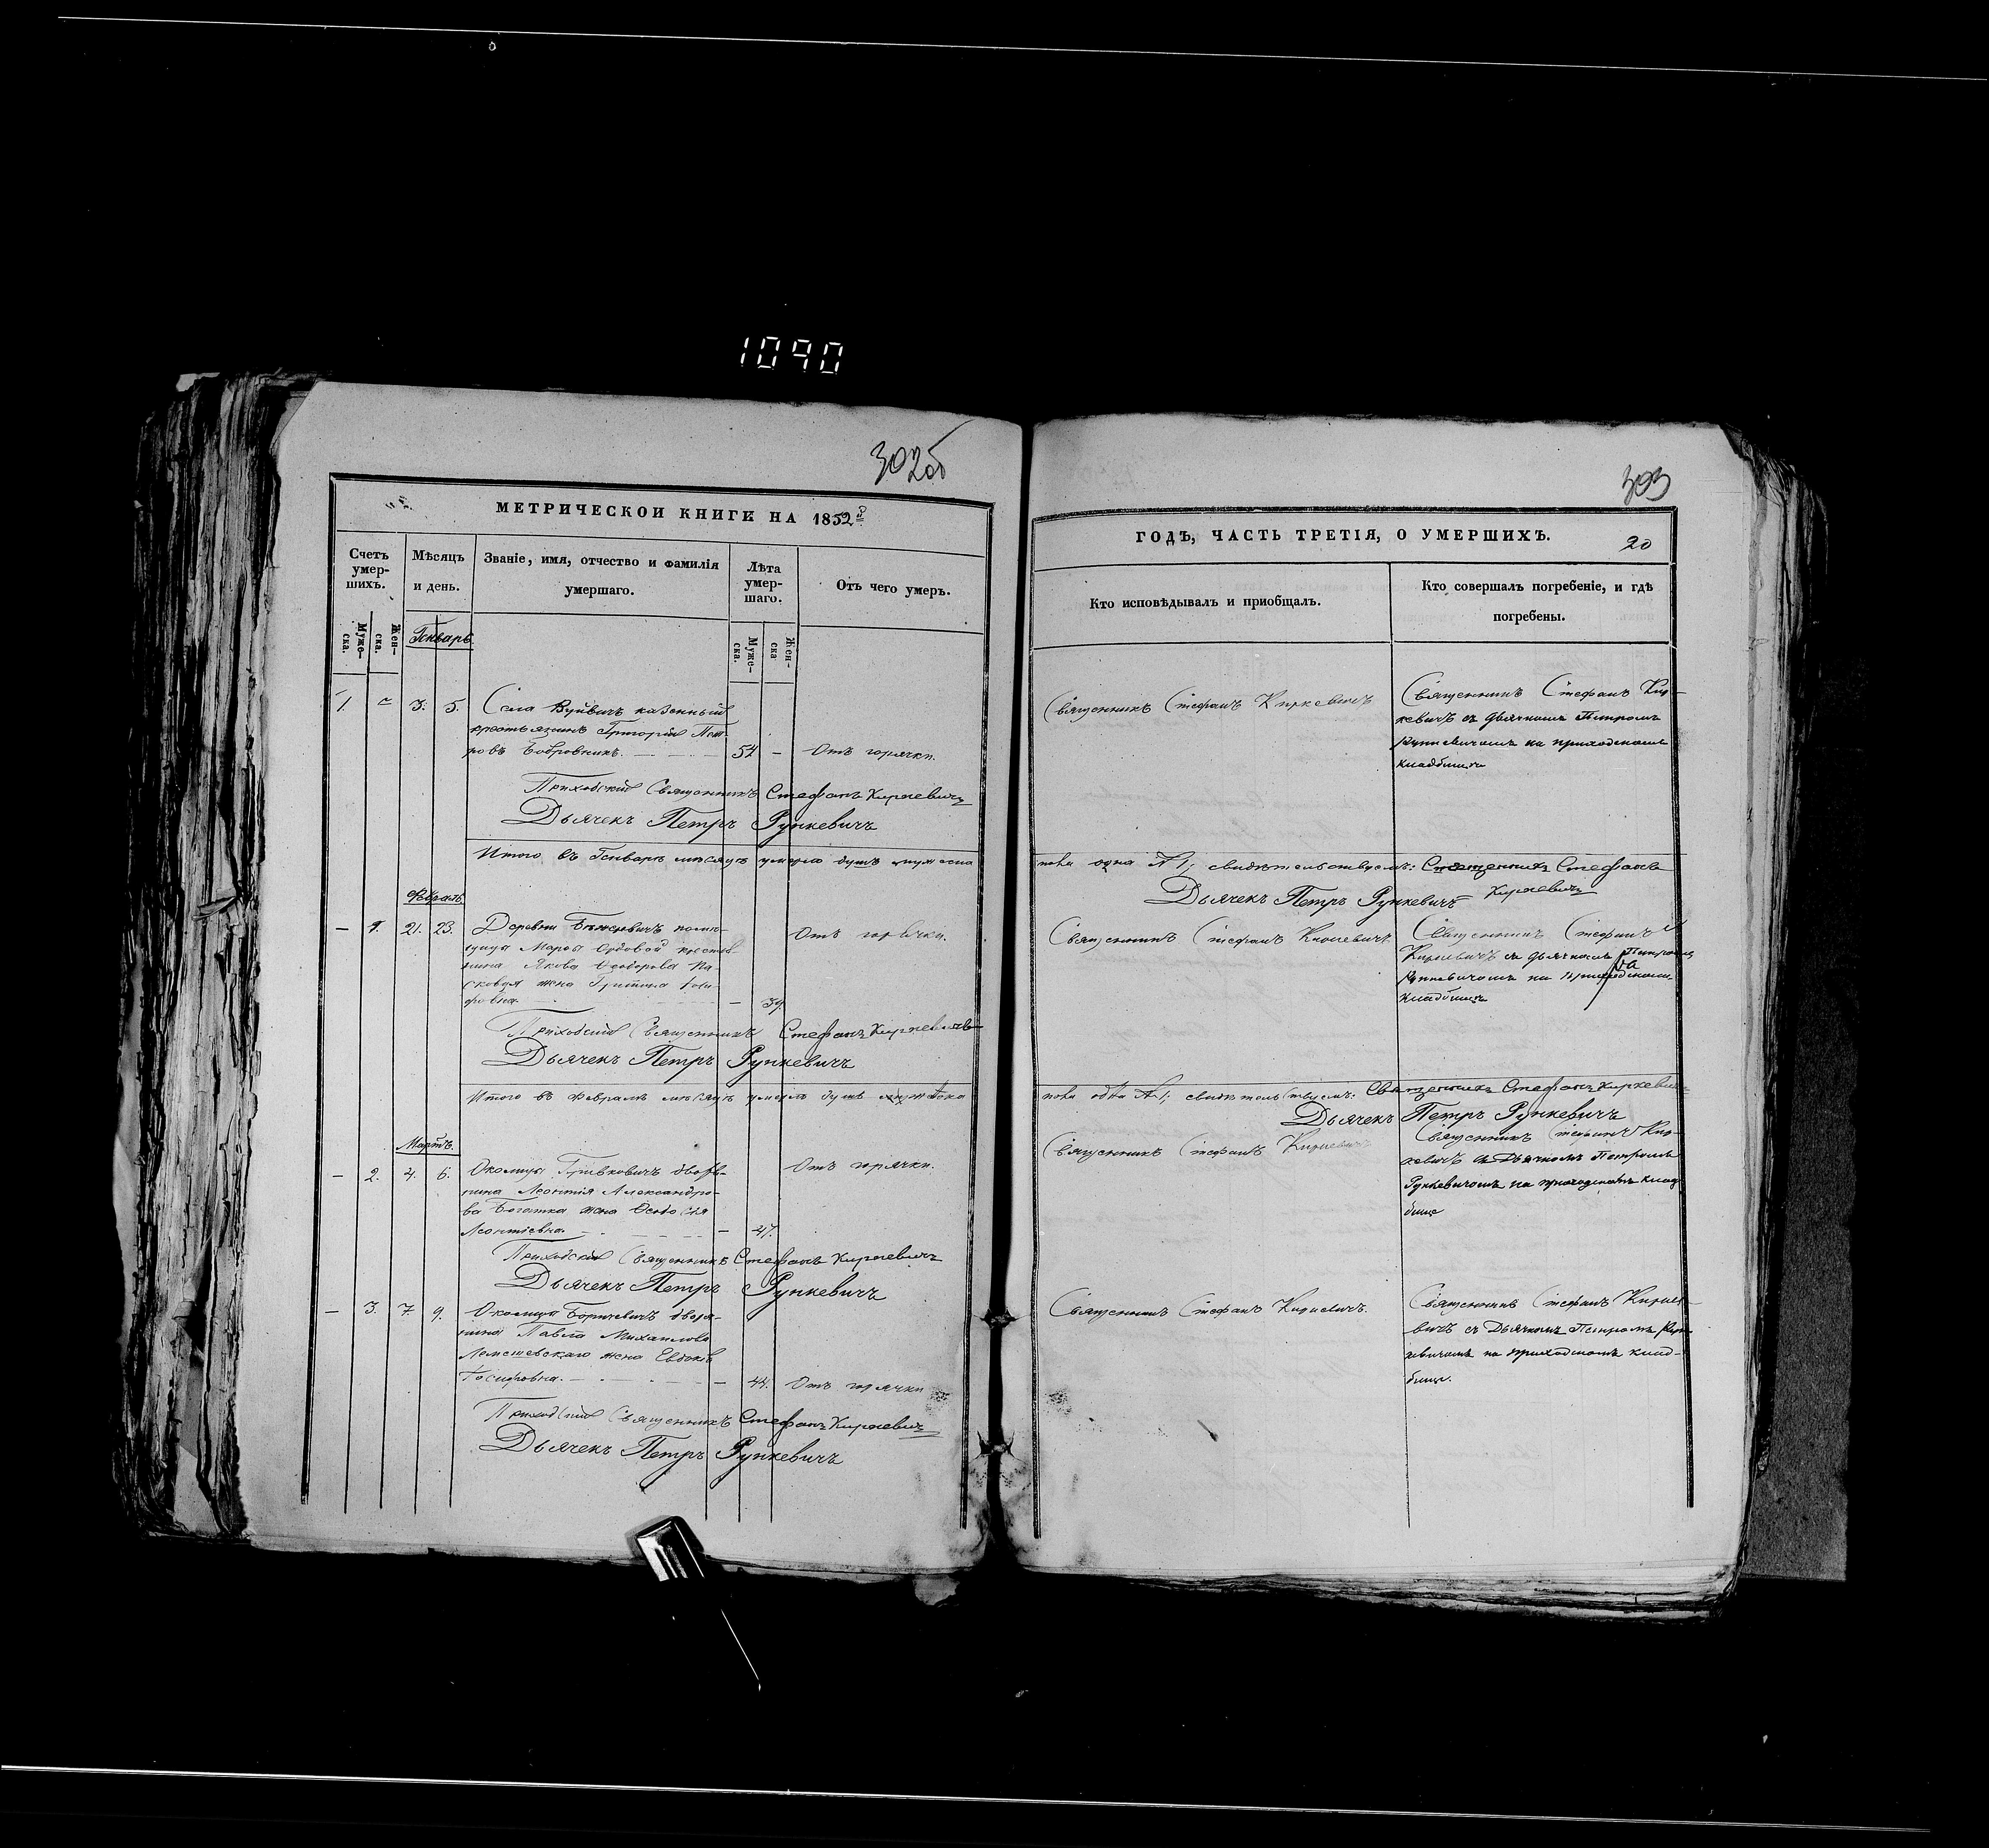 1090
302об
МЕТРИЧЕСКОЙ КНИГИ НА 1852й
Счетъ умер-шихъ.
Мѣсяцъ и день.
Званіе, имя, отчество и фамилія умершаго.
Лѣта умер-шаго.
Отъ чего умеръ.
Муже-ска.
Жен-ска.
Муже-ска.
Жен-ска
Генварь
1 3. 5. Села Вуйвичъ казенный
крестьянинъ Григорій Пет-
ровъ Бобровникъ. 54 – Отъ горячки.
Приходскій Священникъ Стефанъ Киркевичъ
Дьячекъ Петръ Рункевичъ
Итого въ Генварѣ мѣсяцѣ умерло душъ мужеска
Февраль.
– 1. 21. 23. Деревни помѣ-
щицы Марфы Ордовой крестья-
нина Якова Феодорова
жена
– 39. Отъ горячки.
Приходскій Священникъ Стефанъ Киркевичъ
Дьячекъ Петръ Рункевичъ
Итого въ Февралѣ мѣсяцѣ умерло душъ
Мартъ.
– 2. 4. 6. Околицы Гривковичъ дворя-
нина Леонтія Александро-
ва Богатка жена Ѳеодосія
Леонтіевна. – 47. Отъ горячки.
Приходскій Священникъ Стефанъ Киркевичъ
Дьячекъ Петръ Рункевичъ
– 3. 7. 9. Околицы Боричевичъ дворя-
нина Павла Михайлова
Лемешевскаго жена Евдокія
Іосифовна. – 44. Отъ горячки
Приходскій Священникъ Стефанъ Киркевичъ
Дьячекъ Петръ Рункевичъ
303
ГОДЪ, ЧАСТЬ ТРЕТІЯ, О УМЕРШИХЪ.
20
Кто исповѣдывалъ и приобщалъ.
Кто совершалъ погребеніе, и гдѣ погребены.
Священникъ Стефанъ Киркевичъ
Священникъ Стефанъ Кир-
кевичъ съ дьячкомъ Петромъ
Рункевичомъ на приходскомъ
кладбищѣ
пола одна №1; свидѣтельствуемъ: Священникъ Стефанъ
Киркевичъ
Дьячекъ Петръ Рункевичъ
Священникъ Стефанъ Киркевичъ.
Священникъ Стефанъ
Киркевичъ съ дьячкомъ Петромъ
Рункевичомъ на приходскомъ
кладбищѣ
пола одна №1; свидѣтельствуемъ: Священникъ Стефанъ Киркевичъ
Дьячекъ Петръ Рункевичъ
Священникъ Стефанъ Киркевичъ
Священникъ Стефанъ Кир-
кевичъ съ Дьячкомъ Петромъ
Рункевичомъ на приходскомъ клад-
бищѣ
Священникъ Стефанъ Киркевичъ.
Священникъ Стефанъ Кирке-
вичъ съ Дьячкомъ Петромъ Рун-
кевичомъ на приходскомъ клад-
бищѣ.